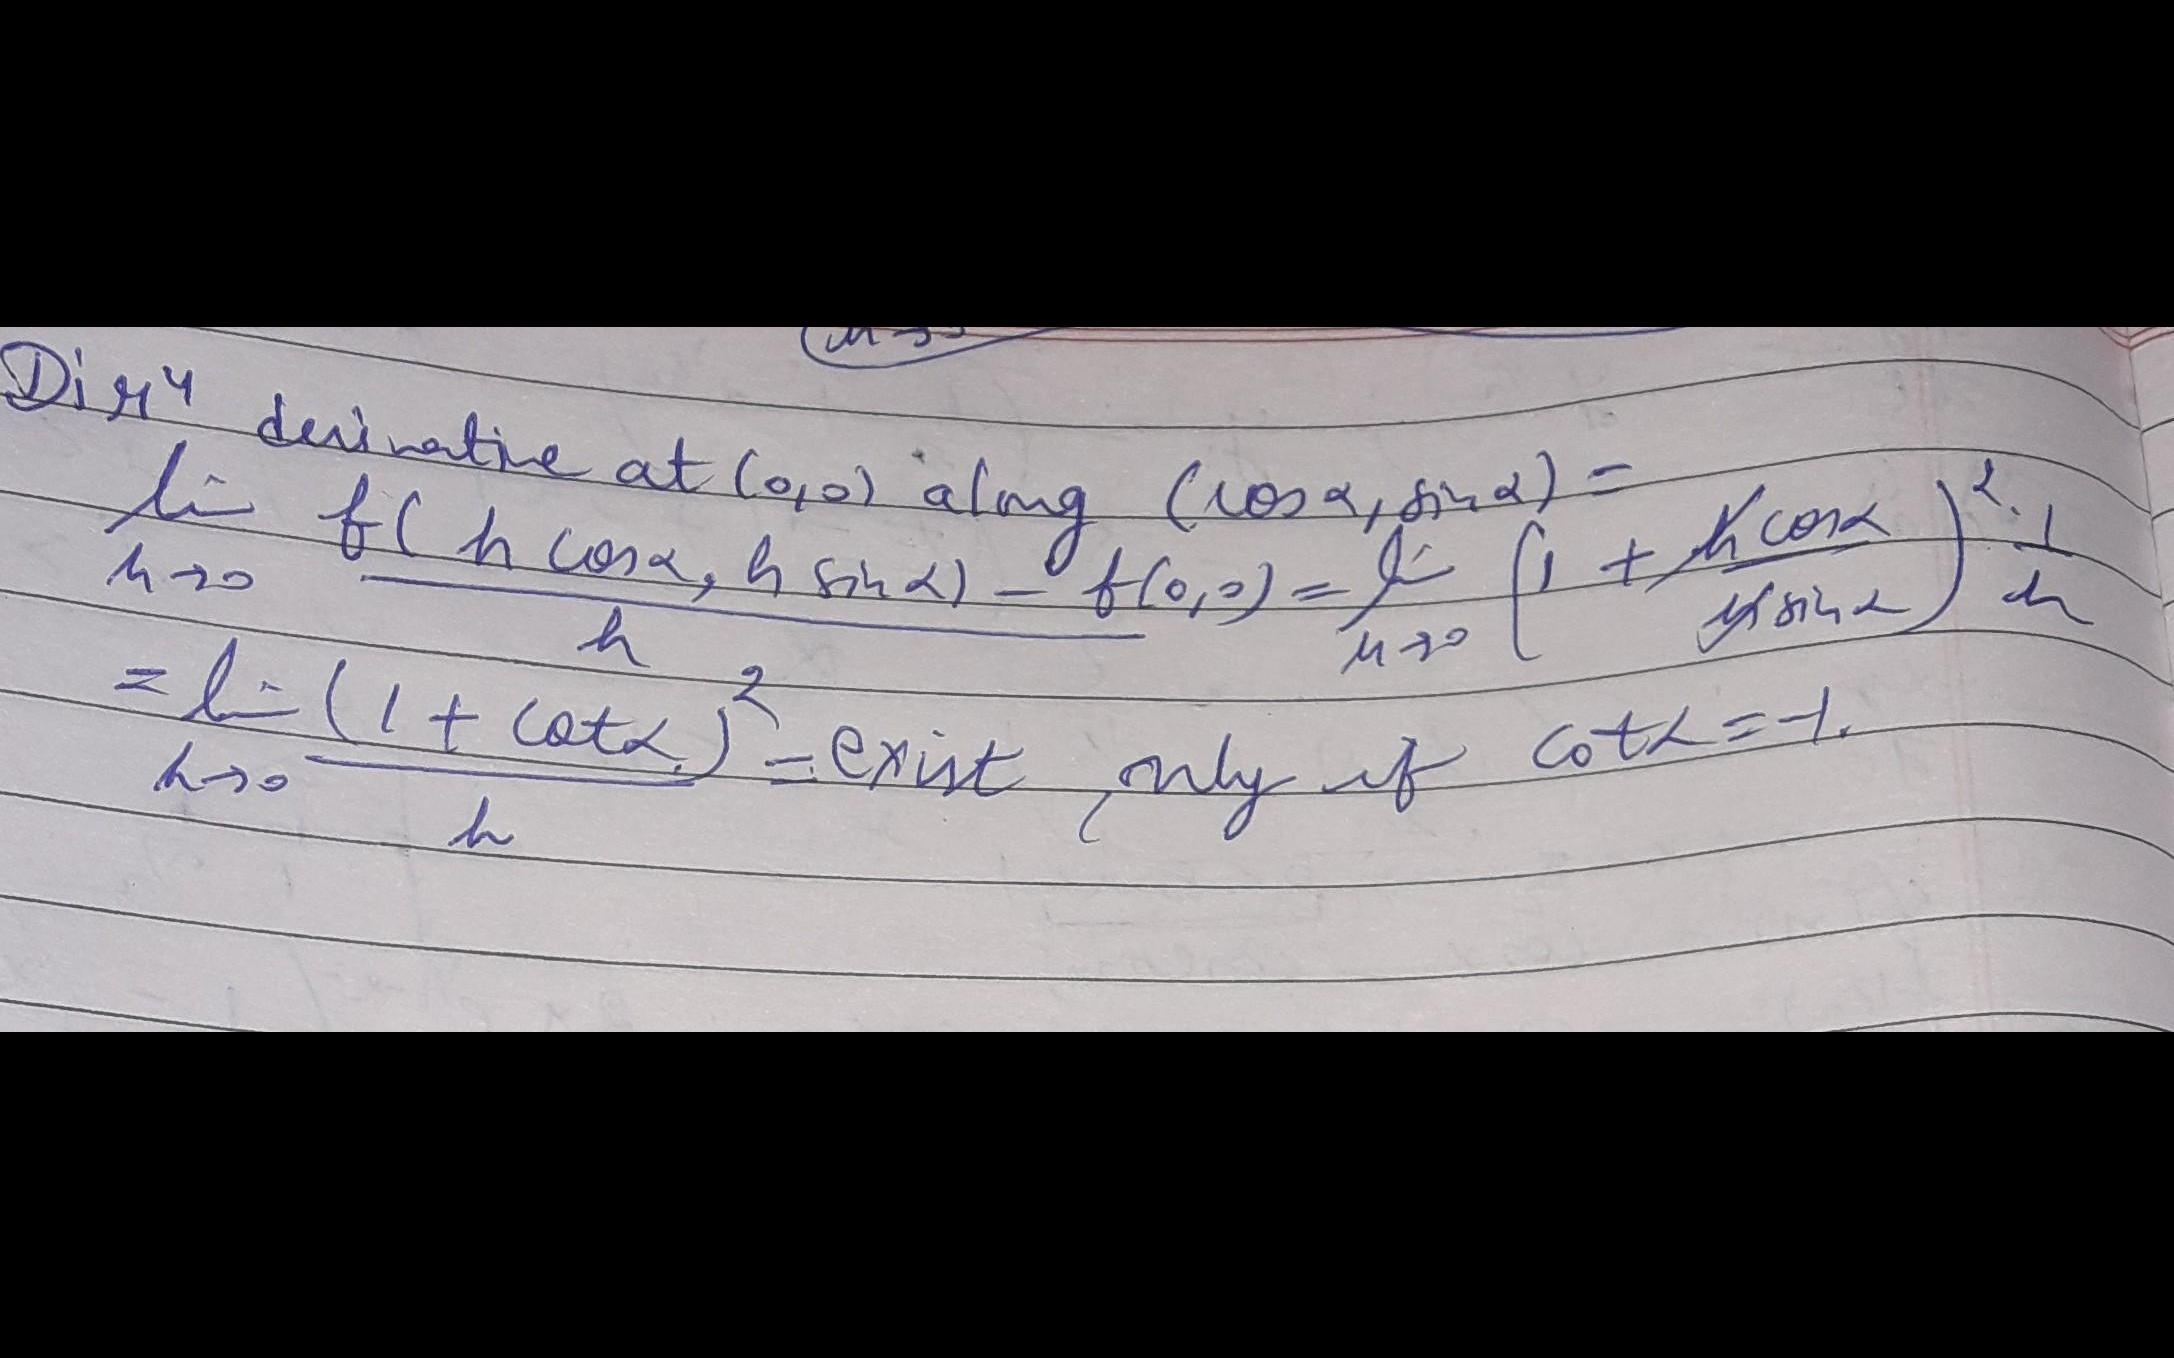 Dirⁿ derivative at (0,0) along (cosα, sinα) =
lim h→0 f(h cosα, h sinα) − f(0,0) / h = lim h→0 (1 + h cosα / h sinα)² · 1/h
= lim h→0 (1 + cotα)² / h = exist only if cotα = -1.